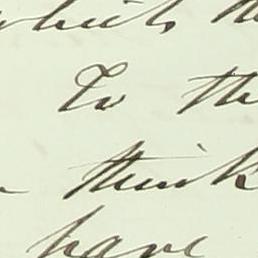 which th
To th
think
have